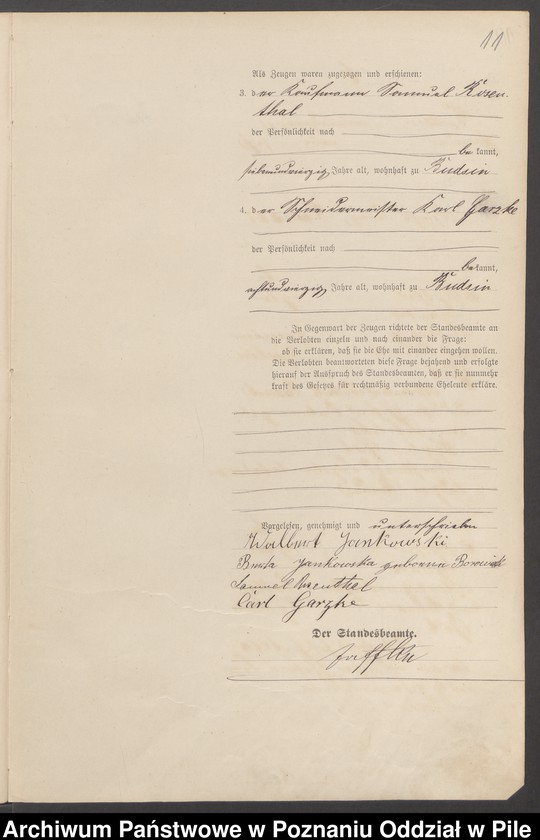 11
Als Zeugen waren zugezogen und erschienen:
3. der Kaufmann Samuel Rosen-
thal
der Persönlichkeit nach
bekannt,
siebenundvierzig Jahre alt, wohnhaft zu Budsin
4. der Schneidermeister Karl Garzke
der Persönlichkeit nach
bekannt,
achtundvierzig Jahre alt, wohnhaft zu Budsin
In Gegenwart der Zeugen richtete der Standesbeamte an
die Verlobten einzeln und nach einander die Frage:
ob sie erklären, daß sie die Ehe mit einander eingehen wollen.
Die Verlobten beantworteten diese Frage bejahend und erfolgte
hierauf der Ausspruch des Standesbeamten, daß er sie nunmehr
kraft des Gesetzes für rechtmäßig verbundene Eheleute erkläre.
Vorgelesen, genehmigt und unterschrieben
Walbert Jankowski
Jankowska geborene
Samuel Rosenthal
Carl Garzke
Der Standesbeamte.
Archiwum Państwowe w Poznaniu Oddział w Pile